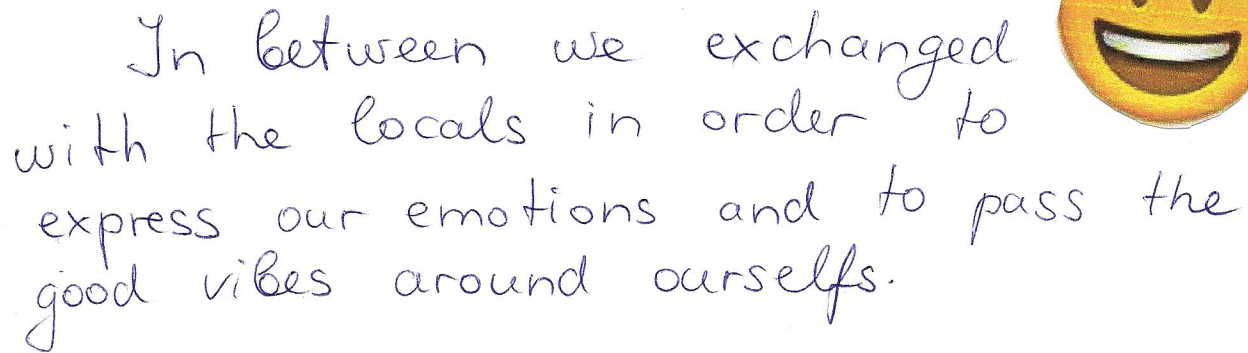 In between we exchanged
with the locals in order to
express our emotions and to pass the
good vibes around ourselfs.